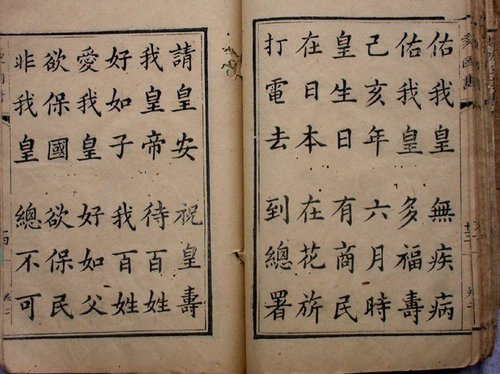 佑我皇 無疾病
佑我皇 多福壽
己亥年 六月時
皇生日 有商民
在日本 在花旂
打電去 到總署
請皇安 祝皇壽
我皇帝 待百姓
好如子 我百姓
愛我皇 好如父
欲保國 欲保民
非我皇 總不可